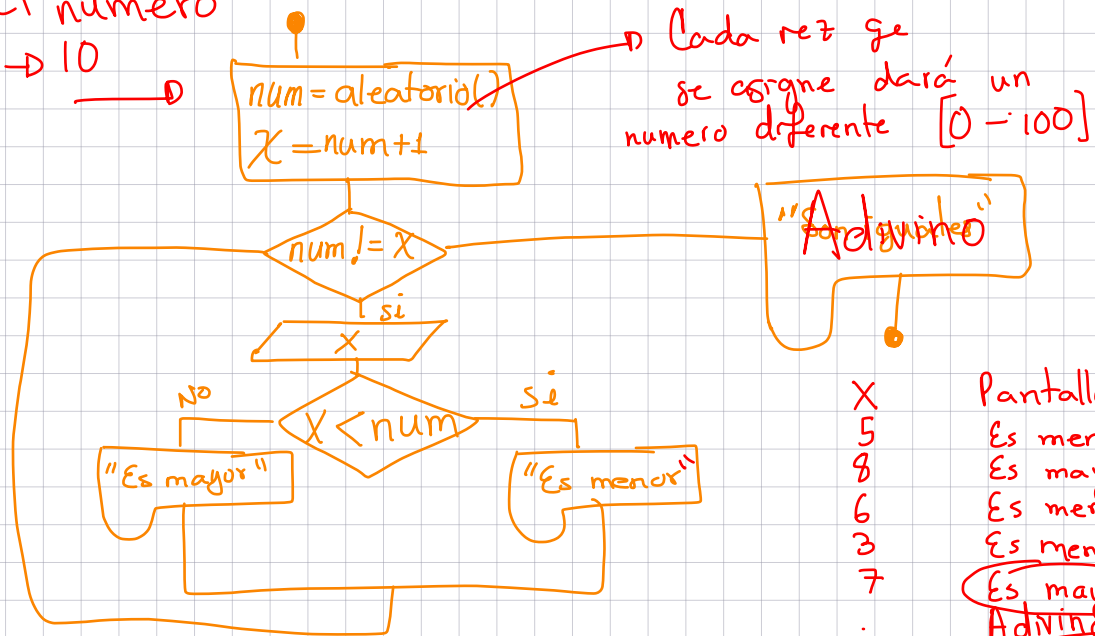 El numero
→ 10
num = aleatorio()
X = num+1
Cada rez qe
se asigne dará un
numero diferente [0 - 100]
num != X
Adivino
si
X
No
Si
X < num
"Es mayor"
"Es menor"
X Pantall
5 Es men
8 Es ma
6 Es men
3 Es men
7 Es may
. Adivino